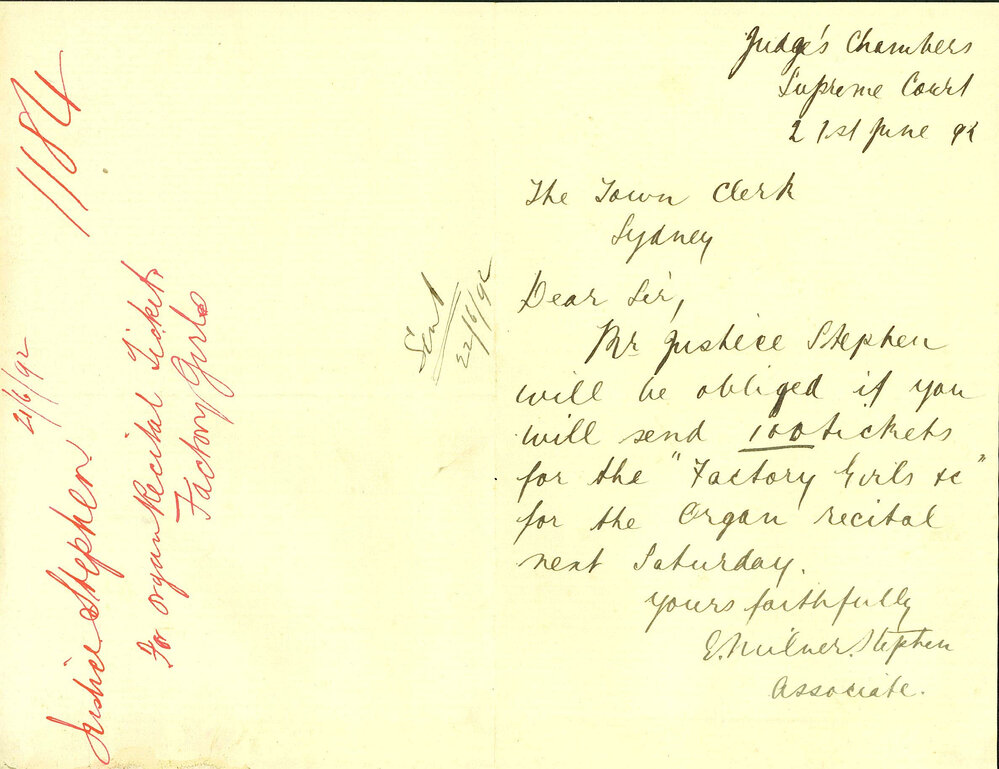 Judge's Chambers
Supreme Court
21st June 92
The Town Clerk
Sydney
Dear Sir,
Mr Justice Stephen
will be obliged if you
will send 100 tickets
for the "Factory Girls &c"
for the Organ recital
next Saturday.
Yours faithfully
E. Milner Stephen
Associate.
Sent
22/6/92
1184
Justice Stephen 21/6/92
For organ Recital Tickets
Factory Girls